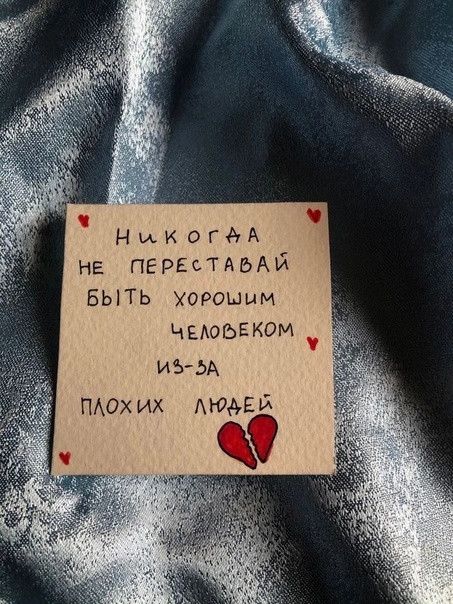 Никогда
не переставай
быть хорошим
человеком
из-за
плохих людей